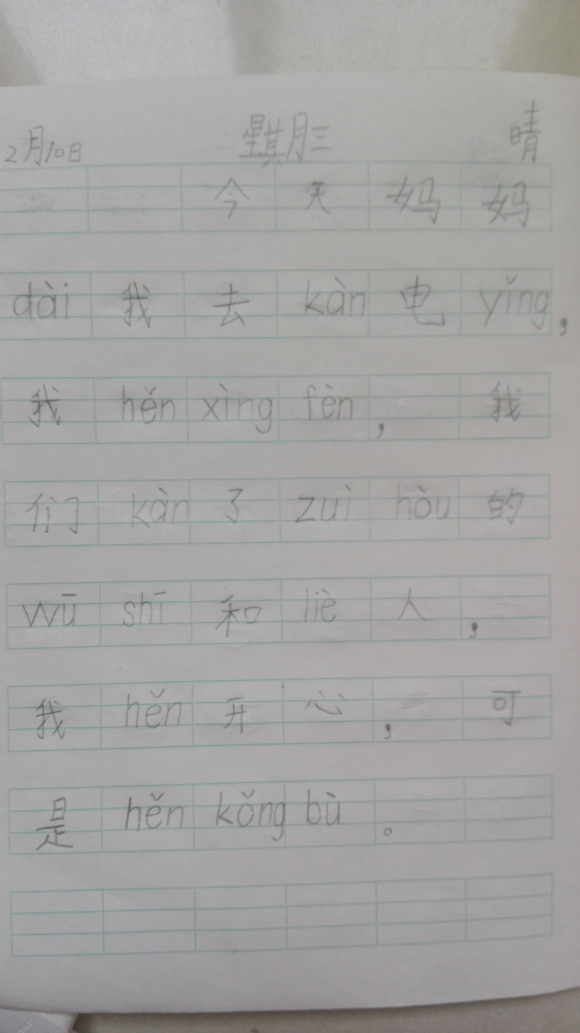 2月10日 星期三 晴
今天妈妈
dài 我去 kàn 电 yǐng,
我 hěn xìng fèn, 我
们 kàn 了 zuì hòu 的
wū shī 和 liè 人,
我 hěn 开心, 可
是 hěn kǒng bù 。